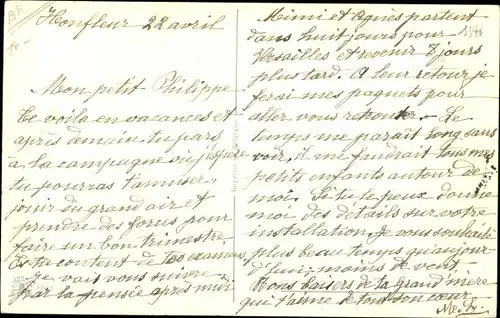 Honfleur 22 avril
Mon petit Philippe
Te voila en vacances et
après demain tu pars
à la campagne où j'espère
tu pourras t'amuser
jouir du grand air et
prendre des forces pour
faire un bon trimestre
Es tu content de tes examens
Je vais vous suivre
par la pensée après mur
Mimi et Agnès partent
dans huit jours pour
Versailles et revenir 8 jours
plus tard. A leur retour je
ferai mes paquets pour
aller vous retrouver. Le
temps me parait long sans
voir, il me faudrait tous mes
petits enfants autour de
moi. Si tu le peux donne
moi des détails sur votre
installation. Je vous souhaite
plus beau temps qu'aujour
d'hui, moins de vent
Bons baisers de ta grand'mère
qui t'aime de tout son cœur